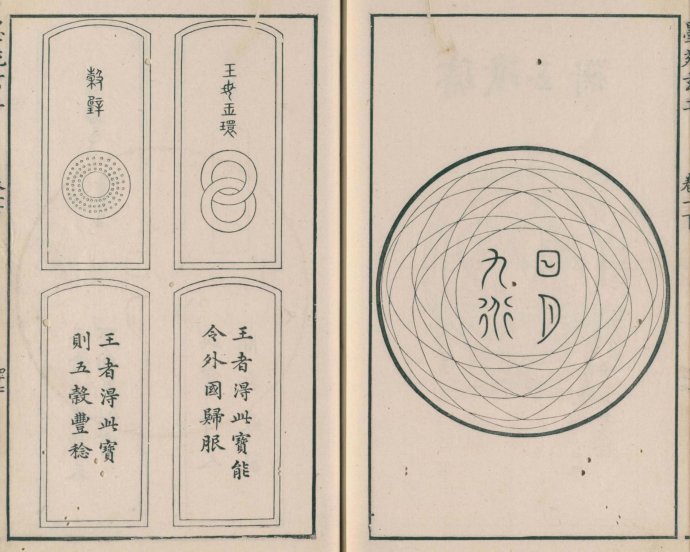 日月
九行
王母玉環
王者得此寶能
令外國歸服
穀璧
王者得此寶
則五穀豐稔